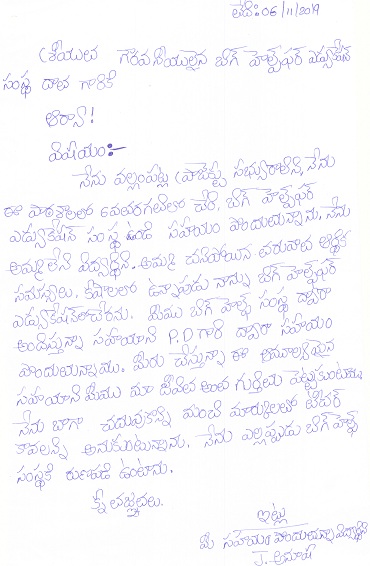 తేది: 06/11/2019
శ్రీయుల గౌరవనీయులైన బిగ్ హెల్ప్‌ఫర్ ఎడ్యుకేషన్
సంస్థ దాత గారికి
ఆర్యా!
విషయం:-
నేను వల్లంపట్ల ప్రాజెక్ట్ సభ్యురాలిని, నేను
ఈ పాఠశాలలో 6వతరగతిలో చేరి, బిగ్ హెల్ప్‌ఫర్
ఎడ్యుకేషన్ సంస్థ నుండి సహాయం పొందుతున్నాను. నేను
అమ్మలేని విద్యార్థిని. అమ్మ చనిపోయిన తరువాత ఆర్థిక
సమస్యలు, కష్టాలలో ఉన్నప్పుడు నాన్ను బిగ్ హెల్ప్‌ఫర్
ఎడ్యుకేషన్‌లో చేరాను. మేము బిగ్ హెల్ప్ సంస్థ ద్వారా
అందిస్తున్నా సహాయాన్ని P.D గారి ద్వారా సహాయం
పొందుతున్నాము. మీరు చేస్తున్నా ఈ అమూల్యమైన
సహాయాన్ని మేము మా జీవిత అంత గుర్తుగా పెట్టుకుంటాము
నేను బాగా చదువుకొని మంచి మార్కులతో టీచర్
కావాలని అనుకుంటున్నాను. నేను ఎల్లప్పుడు బిగ్ హెల్ప్
సంస్థకి రుణపడి ఉంటాను.
కృతజ్ఞతలు.
ఇట్లు
మీ సహాయం పొందుతున్నా విద్యార్థిని
J. అనూష